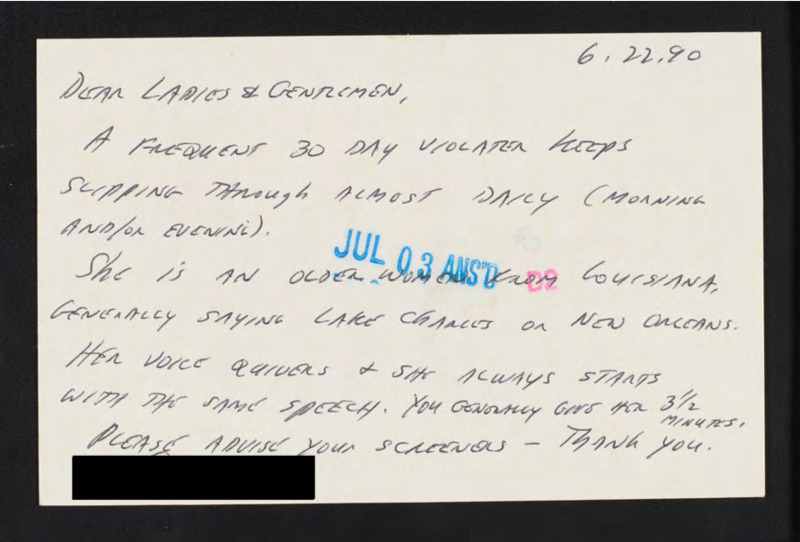 6.22.90
DEAR LADIES & GENTLEMEN,
A FREQUENT 30 DAY VIOLATER KEEPS
SLIPPING THROUGH ALMOST DAILY (MORNING
AND/OR EVENING).
JUL 03 ANS'D D2
SHE IS AN OLDER WOMEN FROM LOUISIANA,
GENERALLY SAYING LAKE CHARLES OR NEW ORLEANS.
HER VOICE QUIVERS & SHE ALWAYS STARTS
WITH THE SAME SPEECH. YOU GENERALLY GIVE HER 3 1/2
MINUTES.
PLEASE ADVISE YOUR SCREENERS – THANK YOU.